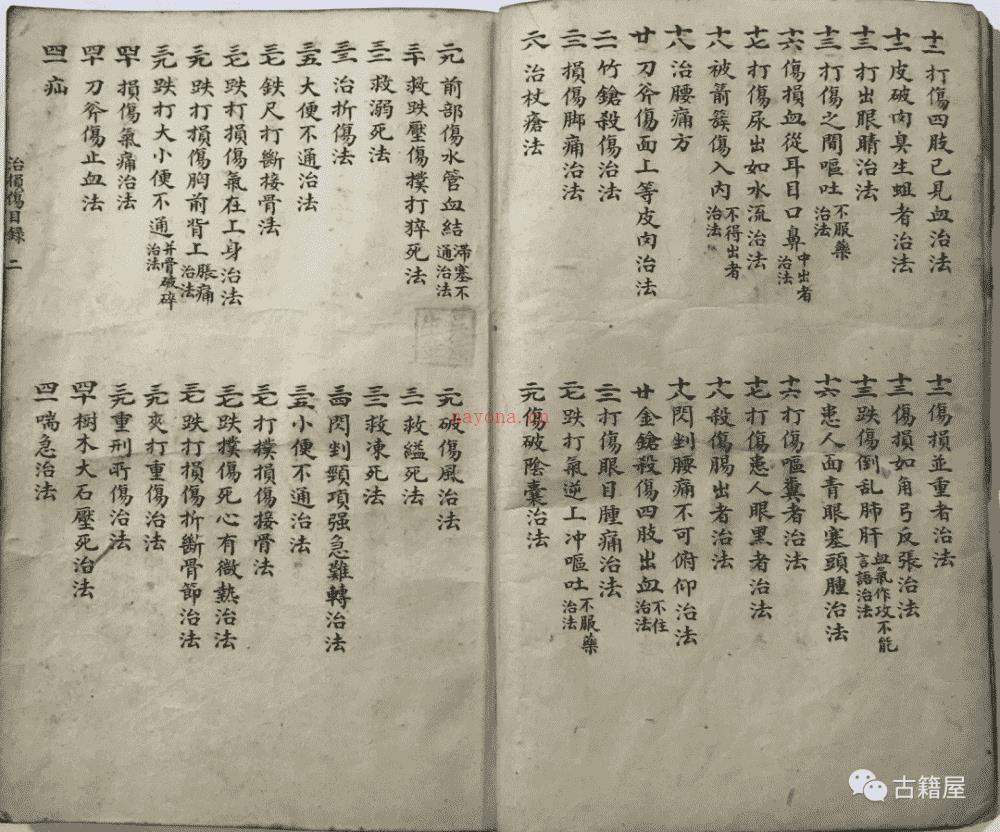 十二 打傷四肢已見血治法
十二 傷損並重者治法
十二 皮破肉臭生蛆者治法
十三 傷損如角弓反張治法
十三 打出眼睛治法
十三 跌傷倒乱肺肝血氣作攻不能言語治法
十三 打傷之間嘔吐不服藥治法
十六 患人面青眼塞頭腫治法
十六 傷損血從耳目口鼻中出者治法
十六 打傷嘔糞者治法
十七 打傷尿出如水流治法
十七 打傷患人眼黑者治法
十八 被箭簇傷入內不得出者治法
十八 殺傷腸出者治法
十八 治腰痛方
十八 閃剉腰痛不可俯仰治法
廿 刀斧傷面上等皮肉治法
廿 金鎗殺傷四肢出血不住治法
二一 竹鎗殺傷治法
二二 打傷眼目腫痛治法
二三 損傷脚痛治法
二七 跌打氣逆上冲嘔吐不服藥治法
二八 治杖瘡法
二九 傷破陰囊治法
二九 前部傷水管血結滞塞不通治法
二九 破傷風治法
三十 救跌壓傷撲打猝死法
三一 救縊死法
三二 救溺死法
三三 救凍死法
三三 治折傷法
三四 閃剉頸項强急難轉治法
三五 大便不通治法
三五 小便不通治法
三七 鉄尺打斷接骨法
三七 打撲損傷接骨法
三七 跌打損傷氣在上身治法
三七 跌撲傷死心有微熱治法
三九 跌打損傷胸前背上脹痛治法
三七 跌打損傷折斷骨節治法
三九 跌打大小便不通并骨破碎治法
三九 夾打重傷治法
四十 損傷氣痛治法
三九 重刑所傷治法
四十 刀斧傷止血法
四十 樹木大石壓死治法
四一 疝
四一 喘急治法
治損傷目錄 二
nayona.cn
古籍屋